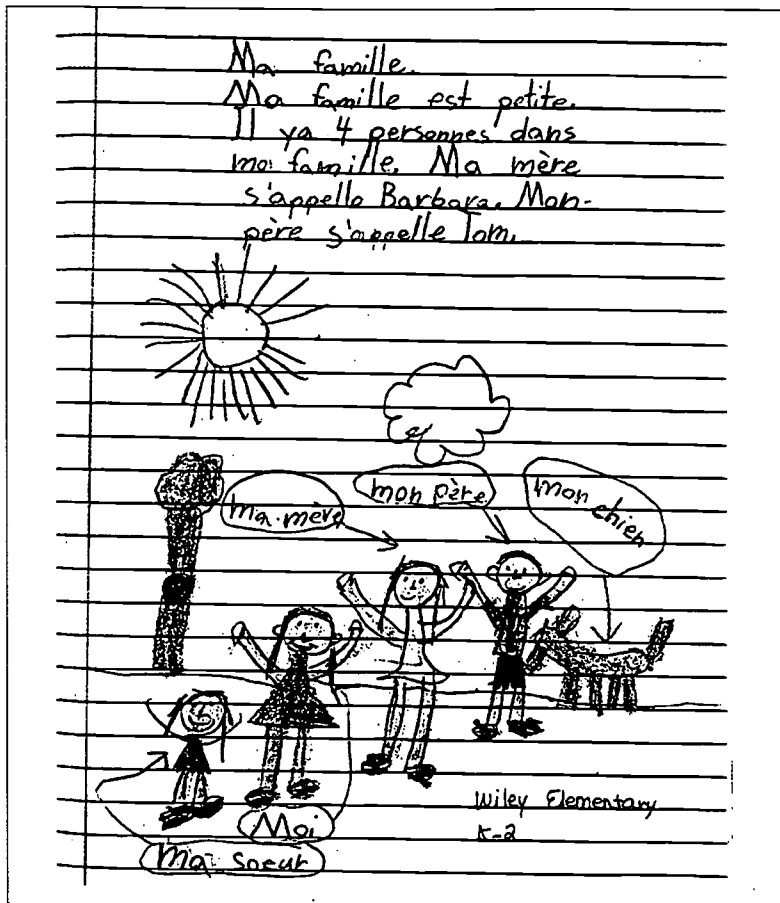 Ma famille.
Ma famille est petite.
Il ya 4 personnes dans
ma famille. Ma mère
s'appelle Barbara. Mon-
père s'appelle Tom.
mon père
mon chien
ma mère
Moi
Ma soeur
Wiley Elementary
K-2